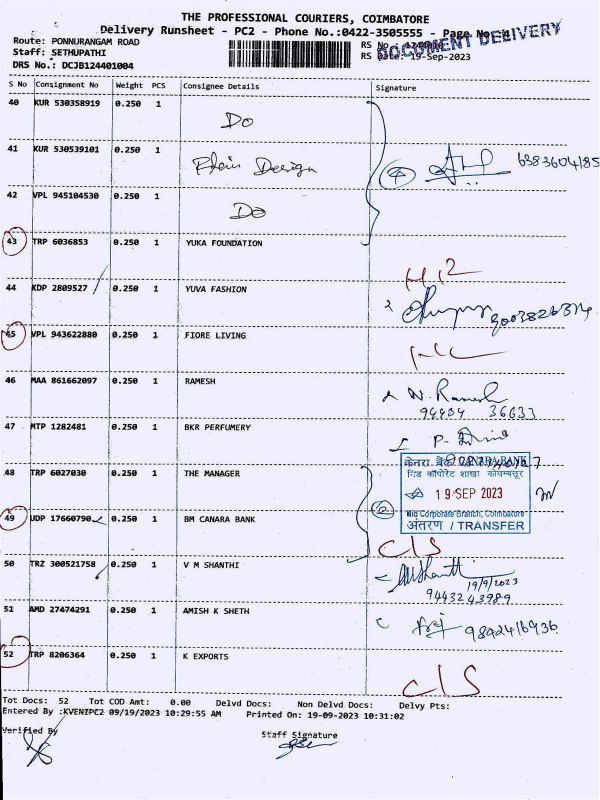 THE PROFESSIONAL COURIERS, COIMBATORE
Delivery Runsheet - PC2 - Phone No.:0422-3505555 - Page No. 4
DOCUMENT DELIVERY
Route: PONNURANGAM ROAD
Staff: SETHUPATHI
RS Date: 19-Sep-2023
DRS No.: DCJB124401004
S No Consignment No Weight PCS Consignee Details Signature
40 KUR 530358919 0.250 1 Do
41 KUR 530539101 0.250 1 Plain Design
42 VPL 945104530 0.250 1 Do
43 TRP 6036853 0.250 1 YUKA FOUNDATION
44 KDP 2809527 0.250 1 YUVA FASHION
45 VPL 943622880 0.250 1 FIORE LIVING
46 MAA 861662097 0.250 1 RAMESH N. Ramesh
47 MTP 1282481 0.250 1 BKR PERFUMERY
केनरा बैंक CANARA BANK
मिड कॉर्पोरेट शाखा कोयम्बतूर
48 TRP 6027030 0.250 1 THE MANAGER
19 SEP 2023
Mid Corporate Branch, Coimbatore
अंतरण / TRANSFER
49 UDP 17660790 0.250 1 BM CANARA BANK C/S
50 TRZ 300521758 0.250 1 V M SHANTHI
19/9/2023
9443243989
51 AMD 27474291 0.250 1 AMISH K SHETH 9842416936
52 TRP 8206364 0.250 1 K EXPORTS C/S
Tot Docs: 52 Tot COD Amt: 0.00 Delvd Docs: Non Delvd Docs: Delvy Pts:
Entered By :KVENIPC2 09/19/2023 10:29:55 AM Printed On: 19-09-2023 10:31:02
Verified By Staff Signature